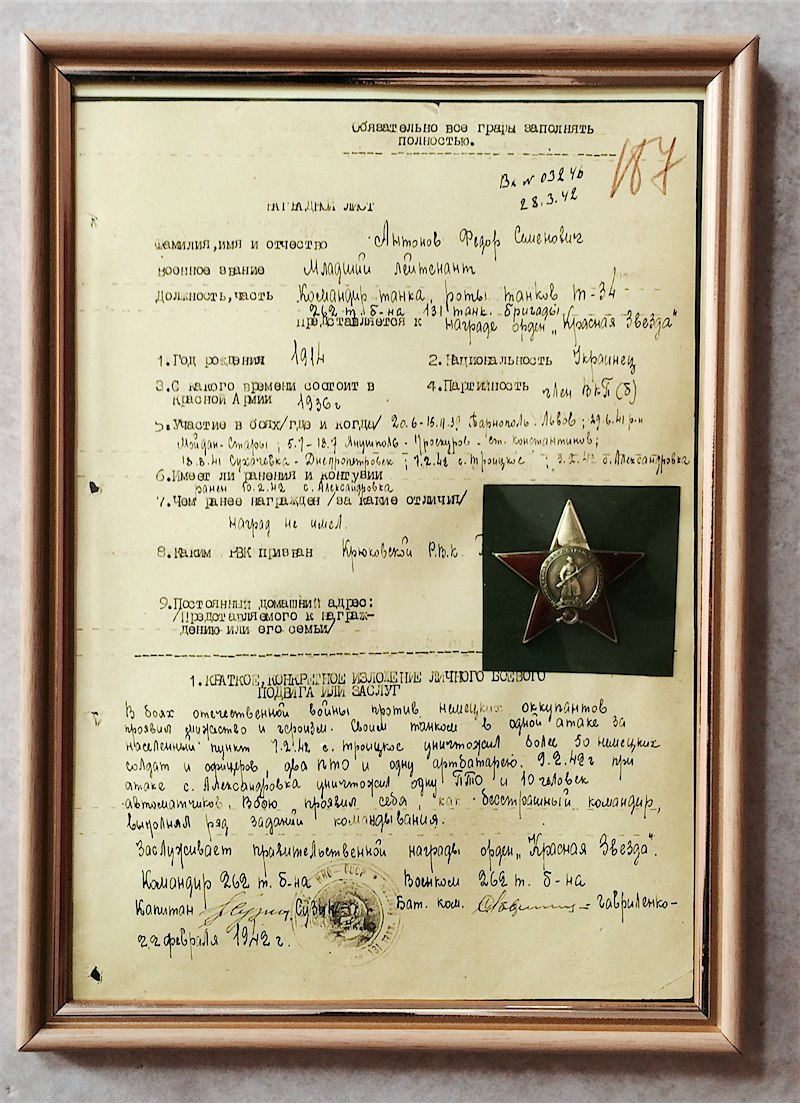 Обязательно все графы заполнять
полностью.
187
Вх № 03246
28.3.42
НАГРАДНОЙ ЛИСТ
Фамилия,имя и отчество Антонов Федор Семенович
Военное звание Младший лейтенант
Должность,часть Командир танка роты танков Т-34
262 т. б-на 131 танк. бригады
представляется к награде орден „Красная Звезда"
1.Год рождения 1914 2.Национальность Украинец
3.С какого времени состоит в 4.Партийность член ВКП(б)
Красной Армии 1936г
5.Участие в боях/где и когда/ Тарнополь. Львов ;
Майдан-Стары ; 5.7-18.7 Янушполь - Проскуров - ст. Константинов;
18.8.41 Сухачевка - Днепропетровск ; 7.2.42 с. Троицкое ; с. Александровка
6.Имеет ли ранения и контузии
ранен 10.2.42 с. Александровка
7.Чем ранее награжден /за какие отличия/
наград не имел.
8.Каким РВК призван Крюковской Р.В.К.
9.Постоянный домашний адрес:
/Представляемого к награж-
дению или его семьи/
1.КРАТКОЕ,КОНКРЕТНОЕ ИЗЛОЖЕНИЕ ЛИЧНОГО БОЕВОГО
ПОДВИГА ИЛИ ЗАСЛУГ
В боях отечественной войны против немецких оккупантов
проявил мужество и героизм. Своим танком в одной атаке за
населенный пункт 7.2.42 с. Троицкое уничтожил более 50 немецких
солдат и офицеров, два ПТО и одну артбатарею. 9.2.42г при
атаке с. Александровка уничтожил одну ПТО и 10 человек
автоматчиков. В бою проявил себя, как бесстрашный командир,
выполнял ряд заданий командывания.
Заслуживает правительственной награды орден „Красная Звезда".
Командир 262 т. б-на Военком 262 т. б-на
Капитан Бат. ком. Гавриленко-
22 февраля 1942 г.